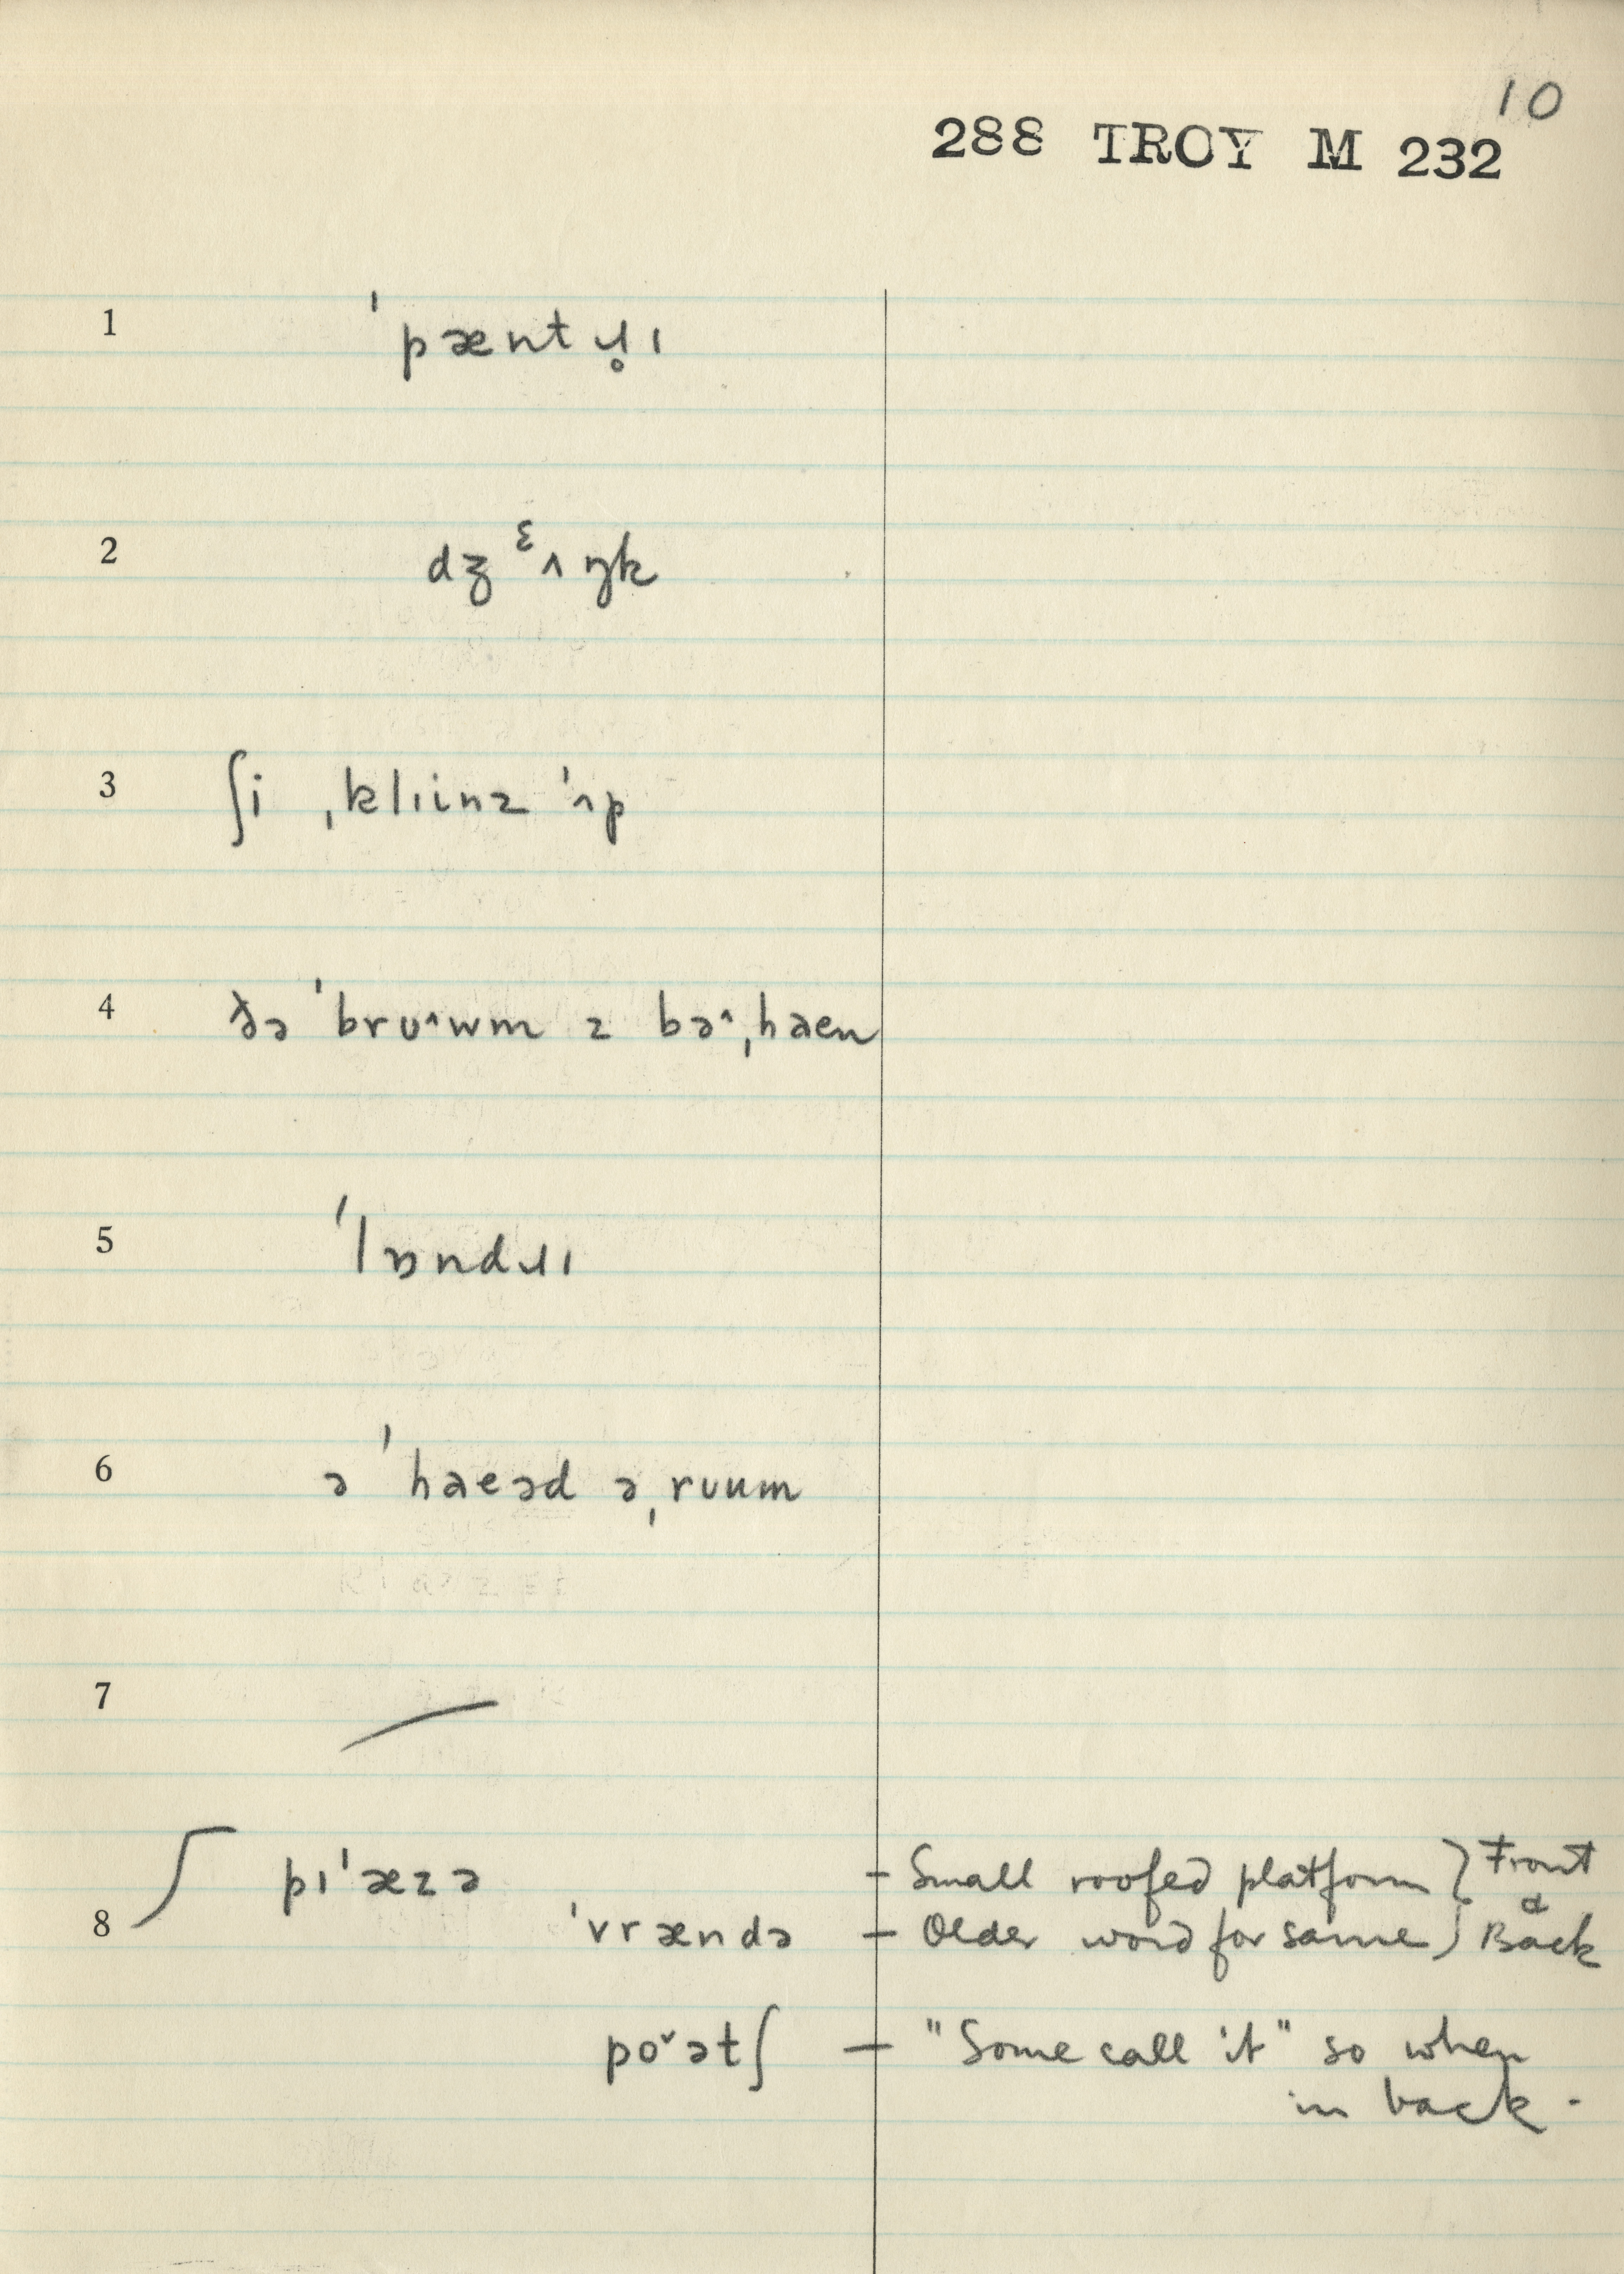 10
288 TROY M 232
1 ˈpæntɹ̥ɪ
2 dʒᵋʌŋk
3 ʃi ˌklɪinz ˈʌp
4 ðə ˈbrʊ˄wm z bə˄ˌhaen
5 ˈlɒndɹɪ
6 ə ˈhaeəd əˌrʊum
7 —
8 pɪˈæzə – Small roofed platform } Front
ˈvrændə – Older word for same } & Back
po˅ətʃ – "Some call it" so when
in back.